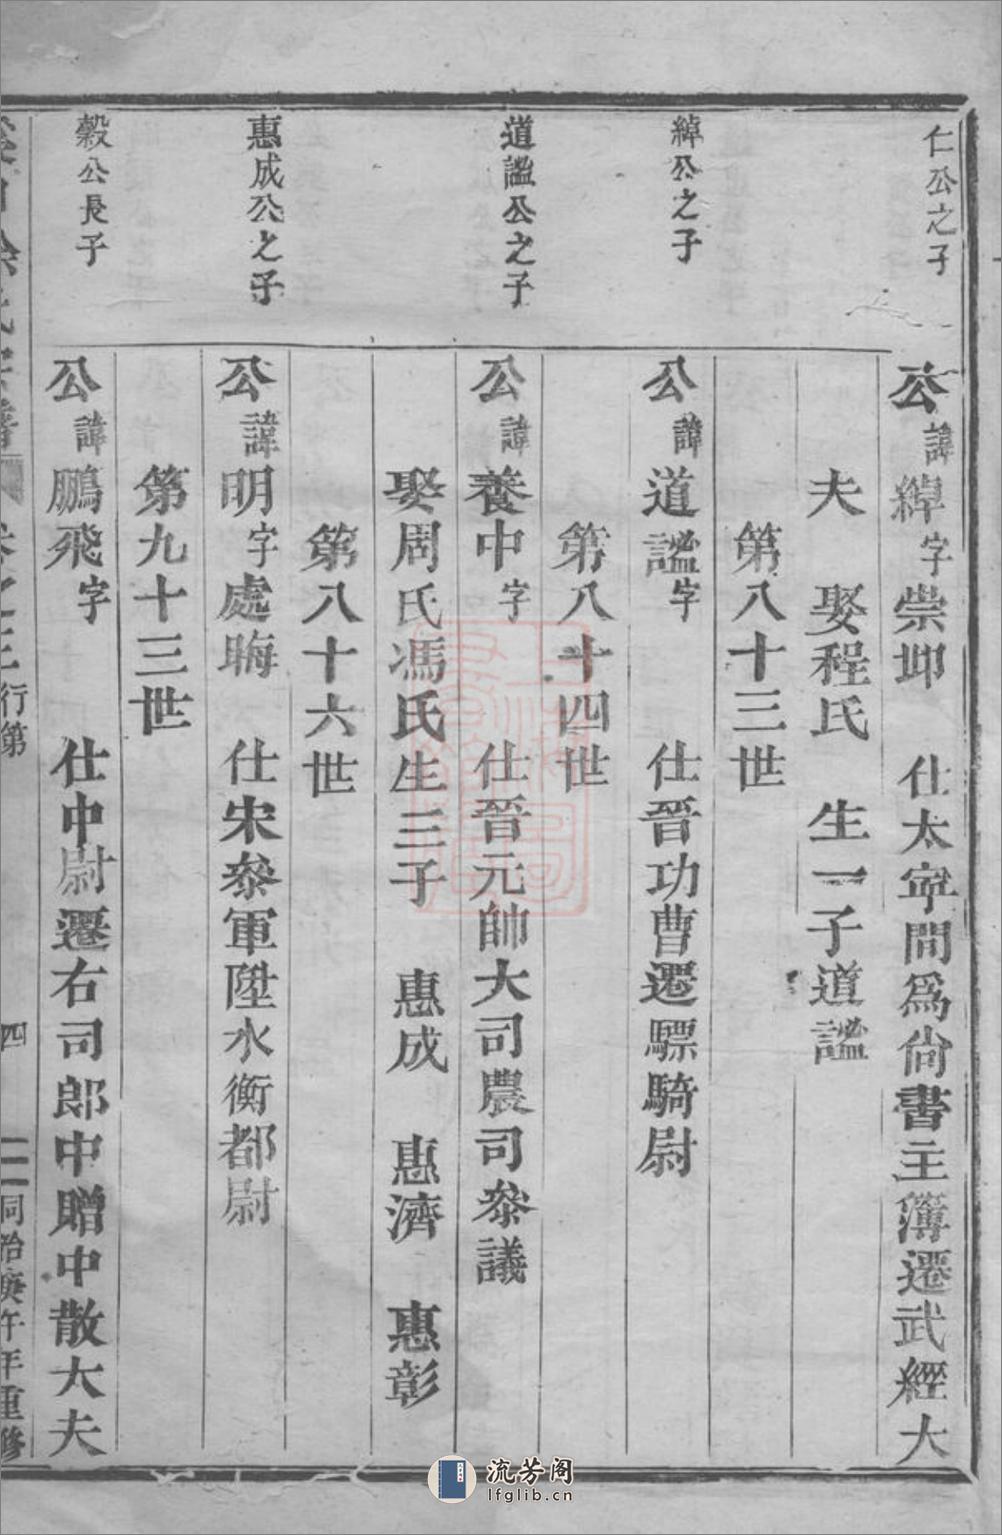 仁公之子
公諱綽字崇𡊮仕太寧間爲尚書主簿遷武經大
夫 娶程氏 生一子道謐
第八十三世
綽公之子
公諱道謐字 仕晉功曹遷驃騎尉
第八十四世
道謐公之子
公諱養中字 仕晉元帥大司農司參議
娶周氏馮氏生三子 惠成 惠濟 惠彰
第八十六世
惠成公之子
公諱明字處晦 仕宋參軍陞水衡都尉
第九十三世
穀公長子
公諱鵬飛字 仕中尉遷右司郎中贈中散大夫
卷之三 行第 四 同治庚午年重修
流芳阁
lfglib.cn